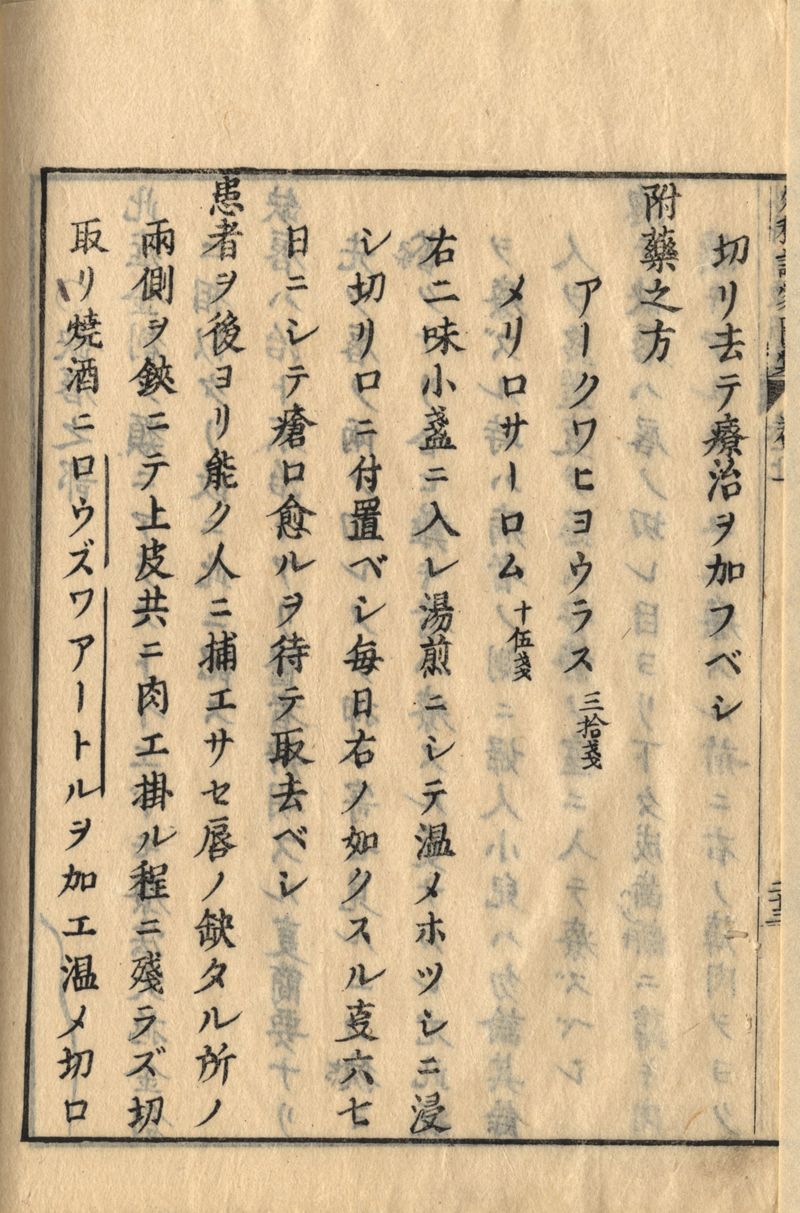 切リ去テ療治ヲ加フベシ
附藥之方
アークワヒヨウラス 三拾戔
メリロサーロム 十伍戔
右二味小盞ニ入レ湯煎ニシテ温メホツシニ浸
シ切リロニ付置ベシ毎日右ノ如クスル㕝六七
日ニシテ瘡口愈ルヲ待テ取去ベシ
患者ヲ後ヨリ能ク人ニ捕エサセ唇ノ缺タル所ノ
兩側ヲ鋏ニテ上皮共ニ肉エ掛ル程ニ殘ラズ切
取リ燒酒ニロウズワアートルヲ加エ温メ切口